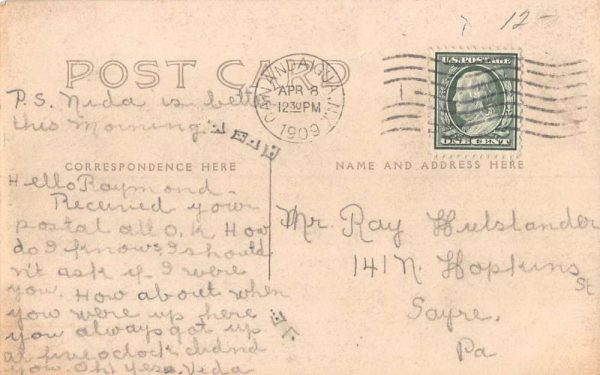 12-
POST CARD
CANANDAIGUA, N.Y.
APR 8
12 30 PM
1909
U.S. POSTAGE
ONE CENT
P.S. Nida is bett
this Morning.
CORRESPONDENCE HERE
Hello Raymond-
Received your
postal all O.K. How
do I know? I should
n't ask if I were
you. How about when
you were up here
you always got up
at five oclock didnd
you. Oh! Yes. Nida
NAME AND ADDRESS HERE
Mr. Ray Hulslander
141 N. Hopkins St
Sayre.
Pa